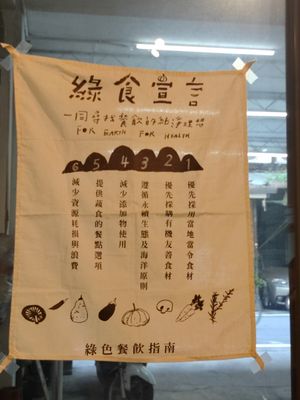 綠食宣言
一同尋找餐飲的
FOR EARTH FOR HEALTH
1 優先採用當地當令食材
2 優先採購有機友善食材
3 遵循永續生態及海洋原則
4 減少添加物使用
5 提供蔬食的餐點選項
6 減少資源耗損與浪費
綠色餐飲指南